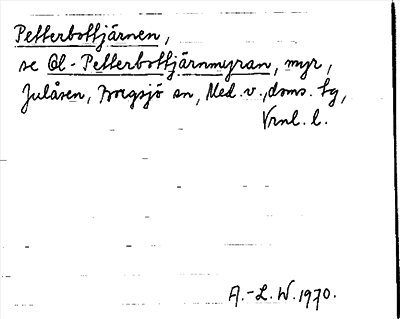 Petterbottjärnen,
se Ol-Petterbottjärnmyran, myr,
Julåsen, Borgsjö sn, Med. v., doms. tg,
Vrnl. l.
A.-L. W. 1970.